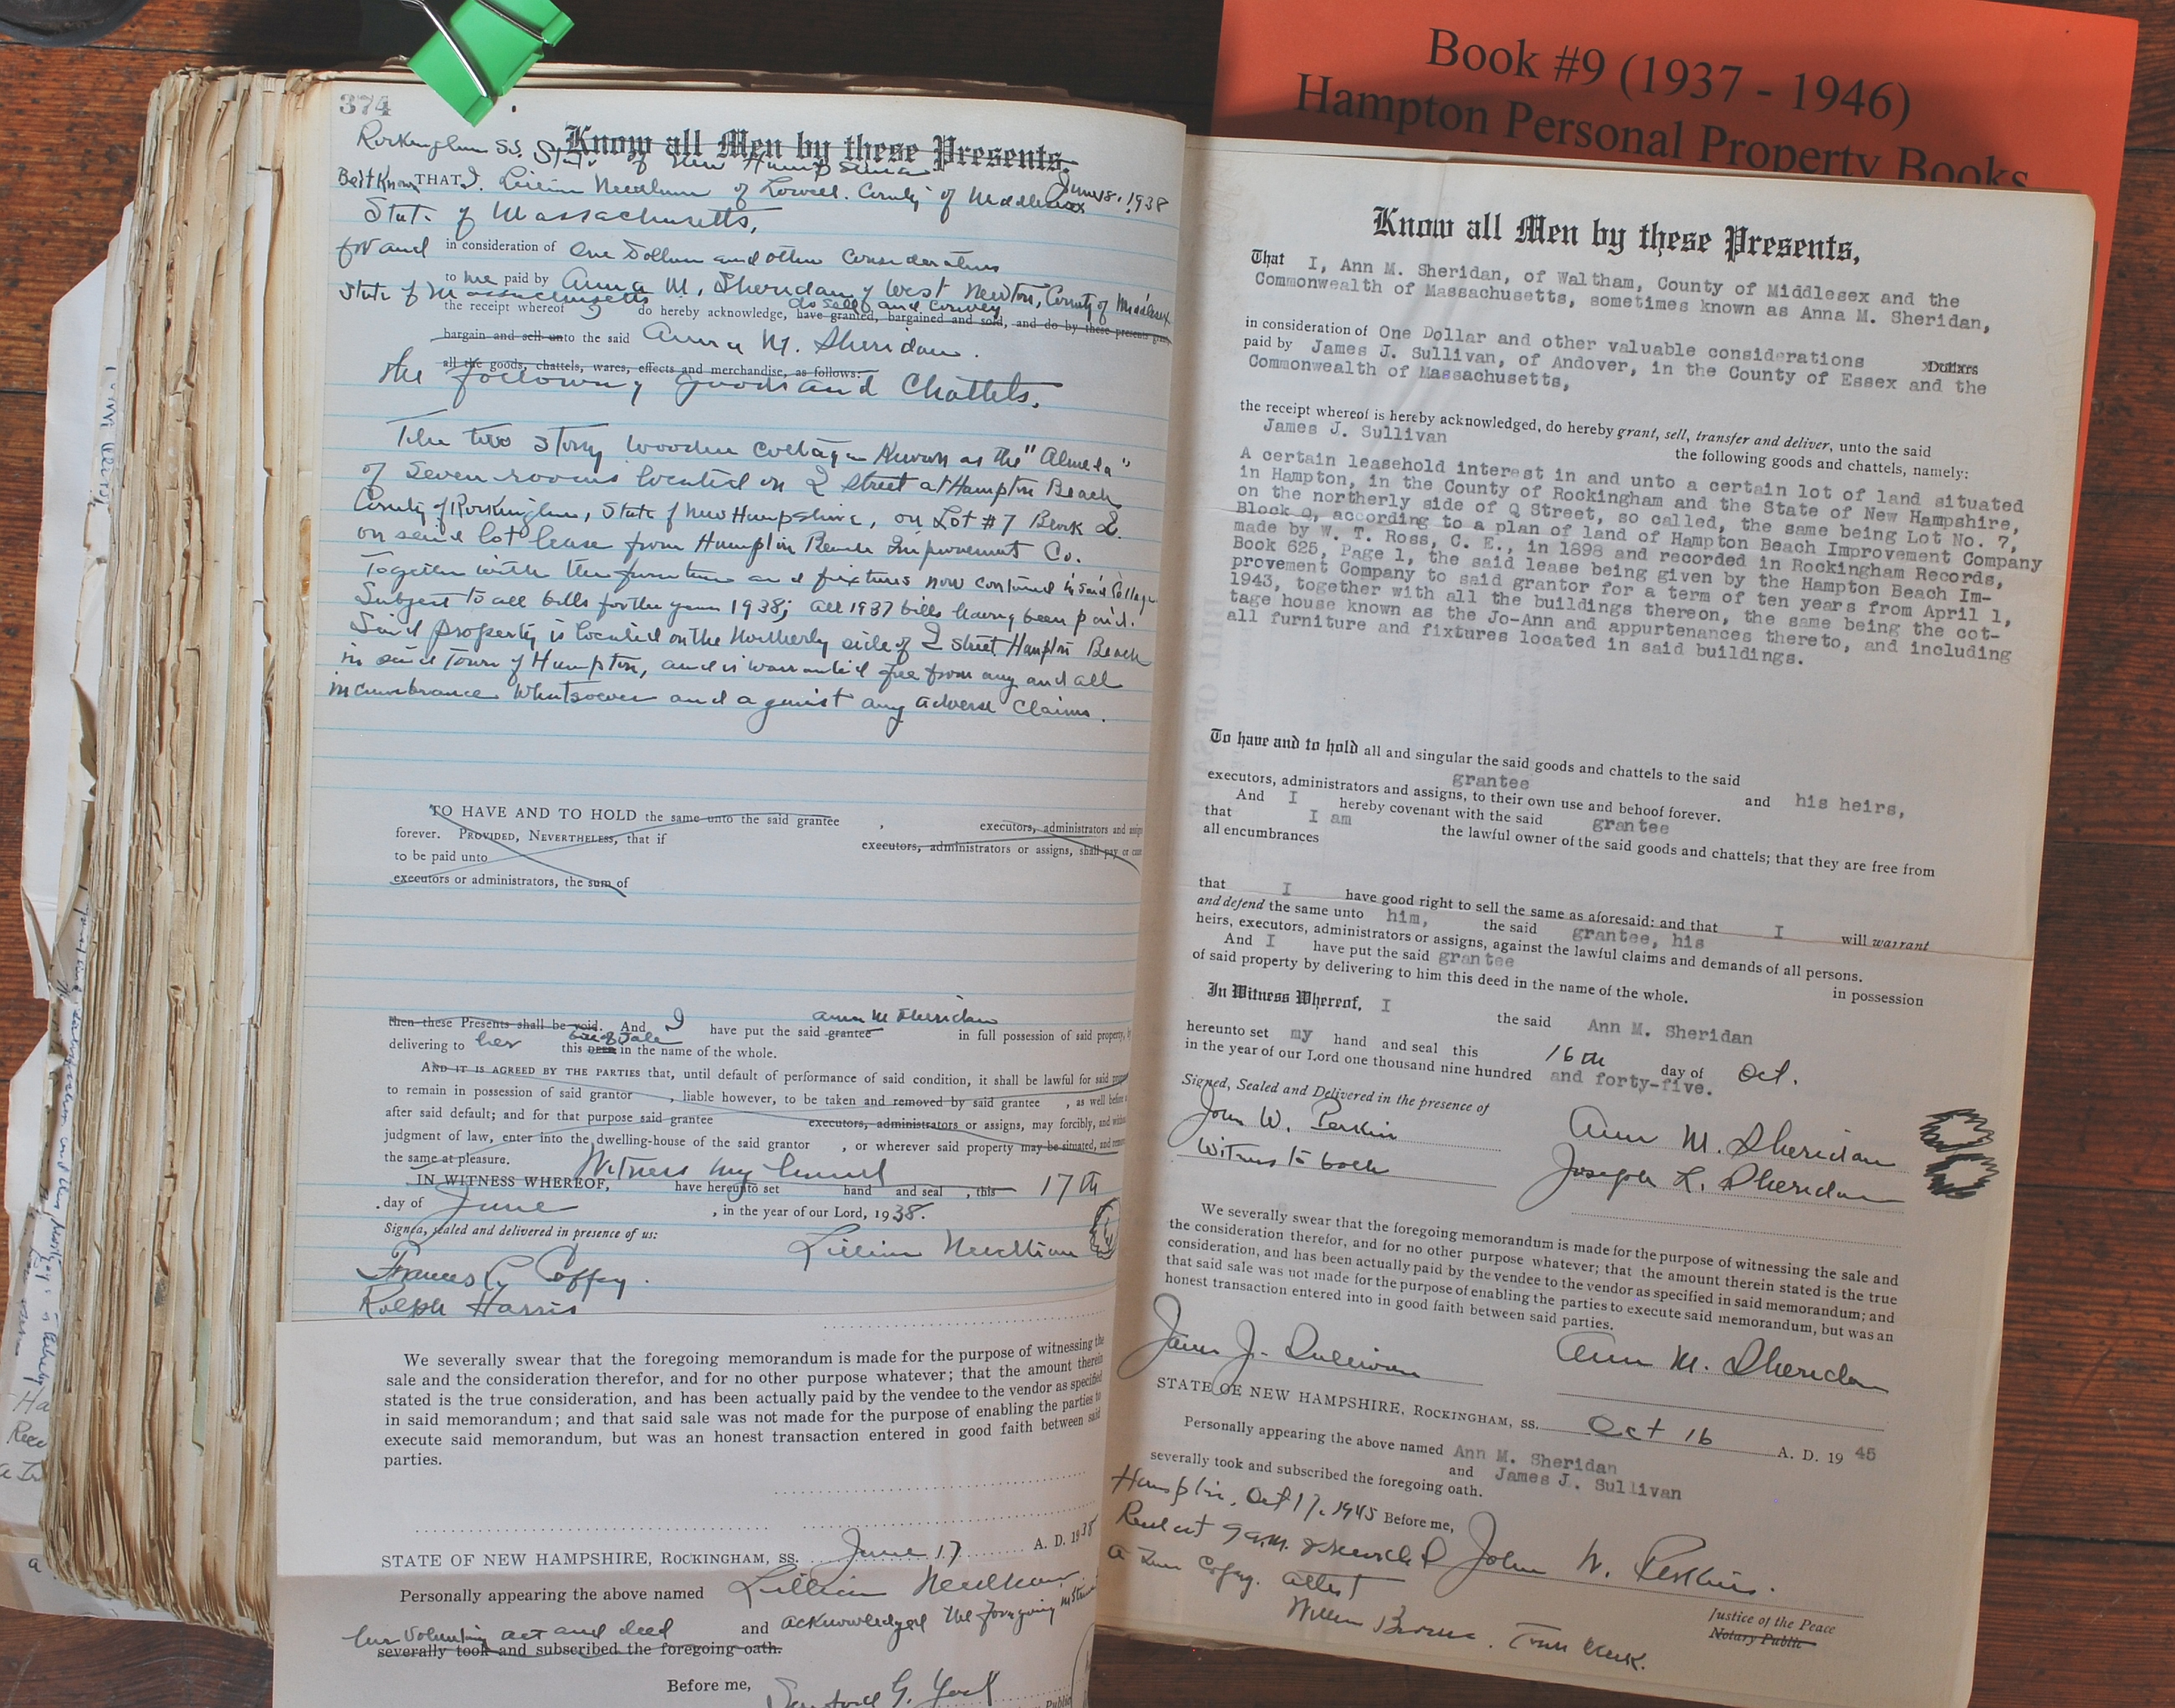 Book #9 (1937 - 1946)
Hampton Personal Property Books
374
Know all Men by these Presents.
Rockingham SS. State of New Hampshire
June 18, 1938
Be it Known THAT I, Lillian Needham of Lowell, County of Middlesex
State of Massachusetts,
for and in consideration of One Dollar and other considerations
to me paid by Anna M. Sheridan of West Newton, County of Middlesex
State of Massachusetts
do sell and convey
the receipt whereof I do hereby acknowledge, have granted, bargained and sold, and do by these presents grant
bargain and sell unto the said Anna M. Sheridan.
all the goods, chattels, wares, effects and merchandise, as follows:
the following goods and Chattels.
The two story wooden cottage Known as the "Almeda"
of Seven rooms located on Q Street at Hampton Beach
County of Rockingham, State of New Hampshire, on Lot #7 Block Q.
on said lot lease from Hampton Beach Improvement Co.
Together with the furniture and fixtures now contained in said Cottage
Subject to all bills for the year 1938; all 1937 bills having been paid.
Said property is located on the Northerly side of Q street Hampton Beach
in said Town of Hampton, and is warrantied free from any and all
incumbrance whatsoever and against any adverse claims.
TO HAVE AND TO HOLD the same unto the said grantee , executors, administrators and assigns
forever. PROVIDED, NEVERTHELESS, that if executors, administrators or assigns, shall pay or cause
to be paid unto
executors or administrators, the sum of
Anna M Sheridan
then these Presents shall be void. And I have put the said grantee in full possession of said property,
Bill of Sale
delivering to her this DEED in the name of the whole.
AND IT IS AGREED BY THE PARTIES that, until default of performance of said condition, it shall be lawful for said
to remain in possession of said grantor , liable however, to be taken and removed by said grantee , as well before
after said default; and for that purpose said grantee executors, administrators or assigns, may forcibly, and without
judgment of law, enter into the dwelling-house of the said grantor , or wherever said property may be situated, and remove
the same at pleasure. Witness my hand
IN WITNESS WHEREOF, have hereunto set hand and seal , this 17th
day of June , in the year of our Lord, 1938.
Signed, sealed and delivered in presence of us:
Lillian Needham
Frances C. Coffey.
Ralph Harris
We severally swear that the foregoing memorandum is made for the purpose of witnessing the
sale and the consideration therefor, and for no other purpose whatever; that the amount therein
stated is the true consideration, and has been actually paid by the vendee to the vendor as specified
in said memorandum; and that said sale was not made for the purpose of enabling the parties to
execute said memorandum, but was an honest transaction entered in good faith between said
parties.
STATE OF NEW HAMPSHIRE, ROCKINGHAM, SS. June 17 A. D. 1938
Personally appearing the above named Lillian Needham
and acknowledged the foregoing instrument
her voluntary act and deed
severally took and subscribed the foregoing oath.
Before me,
G. York
Know all Men by these Presents,
That I, Ann M. Sheridan, of Waltham, County of Middlesex and the
Commonwealth of Massachusetts, sometimes known as Anna M. Sheridan,
in consideration of One Dollar and other valuable considerations Dollars
paid by James J. Sullivan, of Andover, in the County of Essex and the
Commonwealth of Massachusetts,
the receipt whereof is hereby acknowledged, do hereby grant, sell, transfer and deliver, unto the said
James J. Sullivan the following goods and chattels, namely:
A certain leasehold interest in and unto a certain lot of land situated
in Hampton, in the County of Rockingham and the State of New Hampshire,
on the northerly side of Q Street, so called, the same being Lot No. 7,
Block Q, according to a plan of land of Hampton Beach Improvement Company
made by W. T. Ross, C. E., in 1898 and recorded in Rockingham Records,
Book 625, Page 1, the said lease being given by the Hampton Beach Im-
provement Company to said grantor for a term of ten years from April 1,
1943, together with all the buildings thereon, the same being the cot-
tage house known as the Jo-Ann and appurtenances thereto, and including
all furniture and fixtures located in said buildings.
To have and to hold all and singular the said goods and chattels to the said
grantee and his heirs,
executors, administrators and assigns, to their own use and behoof forever.
And I hereby covenant with the said grantee
that I am the lawful owner of the said goods and chattels; that they are free from
all encumbrances
that I have good right to sell the same as aforesaid: and that I will warrant
and defend the same unto him, the said grantee, his
heirs, executors, administrators or assigns, against the lawful claims and demands of all persons.
And I have put the said grantee in possession
of said property by delivering to him this deed in the name of the whole.
In Witness Whereof, I the said Ann M. Sheridan
hereunto set my hand and seal this 16th day of Oct.
in the year of our Lord one thousand nine hundred and forty-five.
Signed, Sealed and Delivered in the presence of
John W. Perkins
Ann M. Sheridan
Witness to both
Joseph L. Sheridan
We severally swear that the foregoing memorandum is made for the purpose of witnessing the sale and
the consideration therefor, and for no other purpose whatever; that the amount therein stated is the true
consideration, and has been actually paid by the vendee to the vendor as specified in said memorandum; and
that said sale was not made for the purpose of enabling the parties to execute said memorandum, but was an
honest transaction entered into in good faith between said parties.
James J. Sullivan
Ann M. Sheridan
STATE OF NEW HAMPSHIRE, ROCKINGHAM, SS. Oct 16 A. D. 19 45
Personally appearing the above named Ann M. Sheridan
and James J. Sullivan
severally took and subscribed the foregoing oath.
Hampton, Oct 17, 1945 Before me,
Rec'd at 9 a.m. & recorded
John W. Perkins.
A True Copy. Attest
William Brown. Town Clerk.
Justice of the Peace
Notary Public